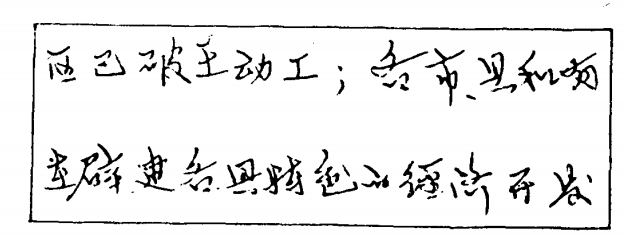 区已破土动工；各市、县和有
在辟建各具特色的经济开发